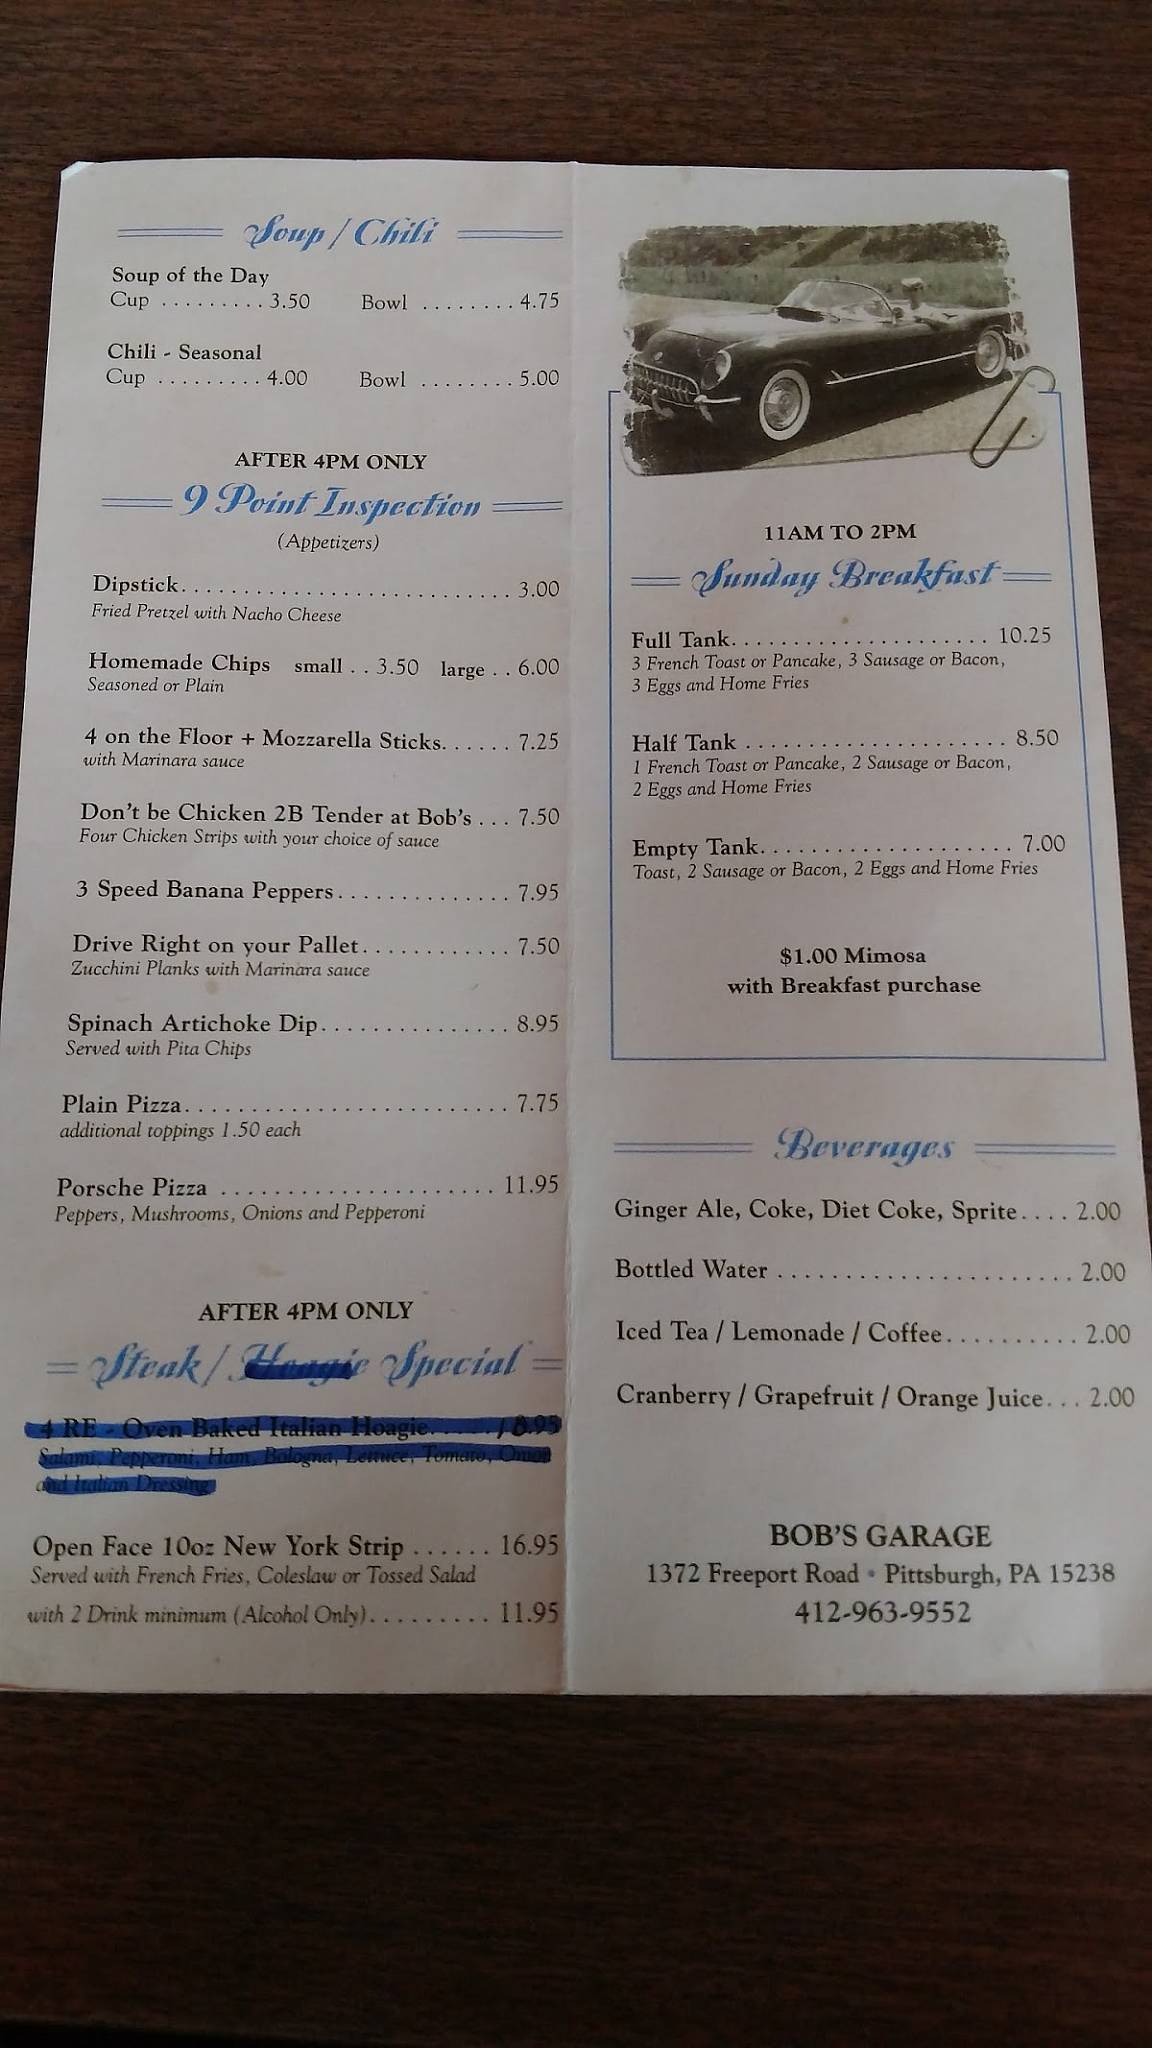 Soup / Chili
Soup of the Day
Cup ......... 3.50 Bowl ........ 4.75
Chili - Seasonal
Cup ......... 4.00 Bowl ........ 5.00
AFTER 4PM ONLY
9 Point Inspection
(Appetizers)
Dipstick............................ 3.00
Fried Pretzel with Nacho Cheese
Homemade Chips small .. 3.50 large .. 6.00
Seasoned or Plain
4 on the Floor + Mozzarella Sticks...... 7.25
with Marinara sauce
Don't be Chicken 2B Tender at Bob's ... 7.50
Four Chicken Strips with your choice of sauce
3 Speed Banana Peppers.............. 7.95
Drive Right on your Pallet............ 7.50
Zucchini Planks with Marinara sauce
Spinach Artichoke Dip............... 8.95
Served with Pita Chips
Plain Pizza.......................... 7.75
additional toppings 1.50 each
Porsche Pizza ...................... 11.95
Peppers, Mushrooms, Onions and Pepperoni
AFTER 4PM ONLY
Steak / Hoagie Special
4 RE - Oven Baked Italian Hoagie...... 8.95
Salami, Pepperoni, Ham, Bologna, Lettuce, Tomato, Onion
and Italian Dressing
Open Face 10oz New York Strip ...... 16.95
Served with French Fries, Coleslaw or Tossed Salad
with 2 Drink minimum (Alcohol Only)......... 11.95
11AM TO 2PM
Sunday Breakfast
Full Tank..................... 10.25
3 French Toast or Pancake, 3 Sausage or Bacon,
3 Eggs and Home Fries
Half Tank ..................... 8.50
1 French Toast or Pancake, 2 Sausage or Bacon,
2 Eggs and Home Fries
Empty Tank.................... 7.00
Toast, 2 Sausage or Bacon, 2 Eggs and Home Fries
$1.00 Mimosa
with Breakfast purchase
Beverages
Ginger Ale, Coke, Diet Coke, Sprite.... 2.00
Bottled Water ...................... 2.00
Iced Tea / Lemonade / Coffee.......... 2.00
Cranberry / Grapefruit / Orange Juice... 2.00
BOB'S GARAGE
1372 Freeport Road • Pittsburgh, PA 15238
412-963-9552